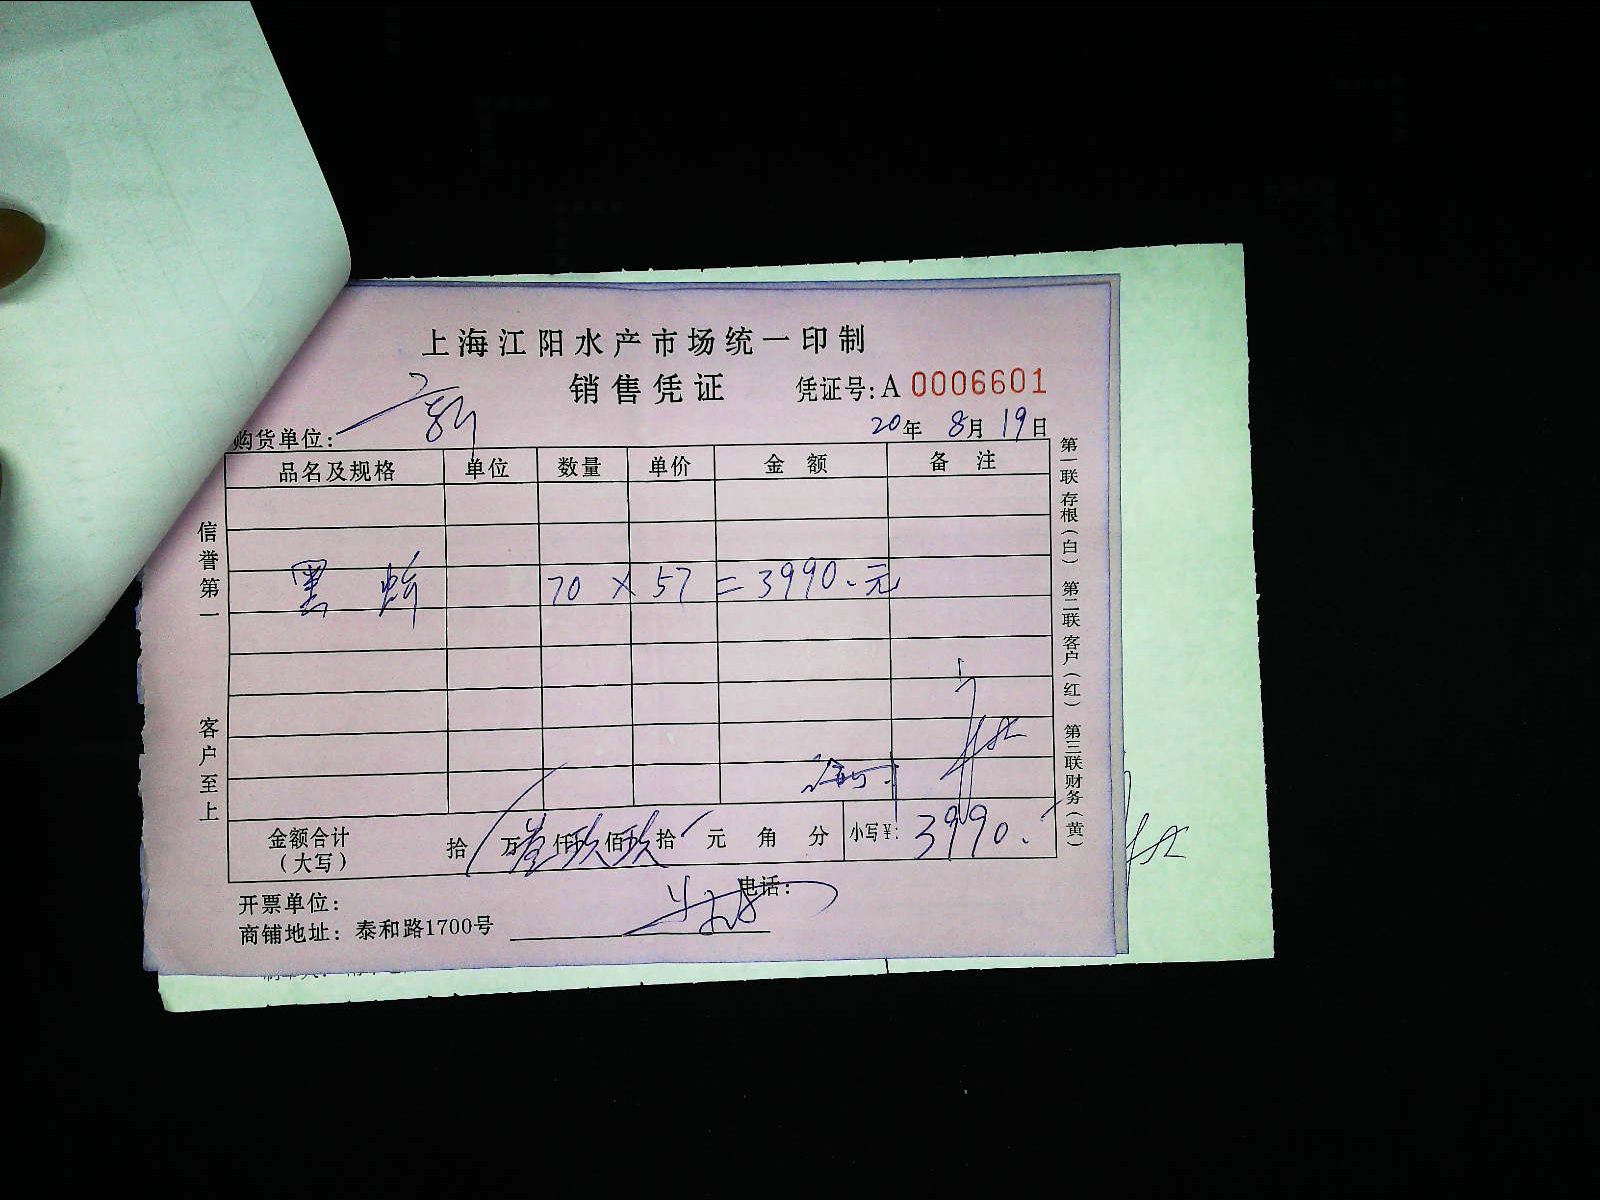 上海江阳水产市场统一印制
销售凭证 凭证号:A 0006601
购货单位: 20年 8月 19日
品名及规格 单位 数量 单价 金额 备注
黑 70 × 57 = 3990.元
金额合计(大写) 拾 万 叁 仟 玖 佰 玖 拾 元 角 分 小写¥: 3990.
开票单位: 电话:
商铺地址: 泰和路1700号
信誉第一 客户至上
第一联存根(白) 第二联客户(红) 第三联财务(黄)